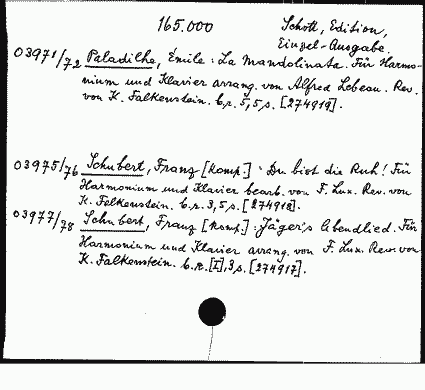 165.000
Schott, Edition,
Einzel-Ausgabe.
03971/72 Paladilhe, Émile: La Mandolinata. Für Harmo-
nium und Klavier arrang. von Alfred Lebeau. Rev.
von K. Falkenstein. C.r. 5, 5 s. [274919].
03975/76 Schubert, Franz [Komp.]: Du bist die Ruh! Für
Harmonium und Klavier bearb. von F. Lux. Rev. von
K. Falkenstein. C.r. 3, 5 s. [274918].
03977/78 Schubert, Franz [Komp.]: Jäger's Abendlied. Für
Harmonium und Klavier arrang. von F. Lux. Rev. von
K. Falkenstein. C.r. [I], 3 s. [274917].